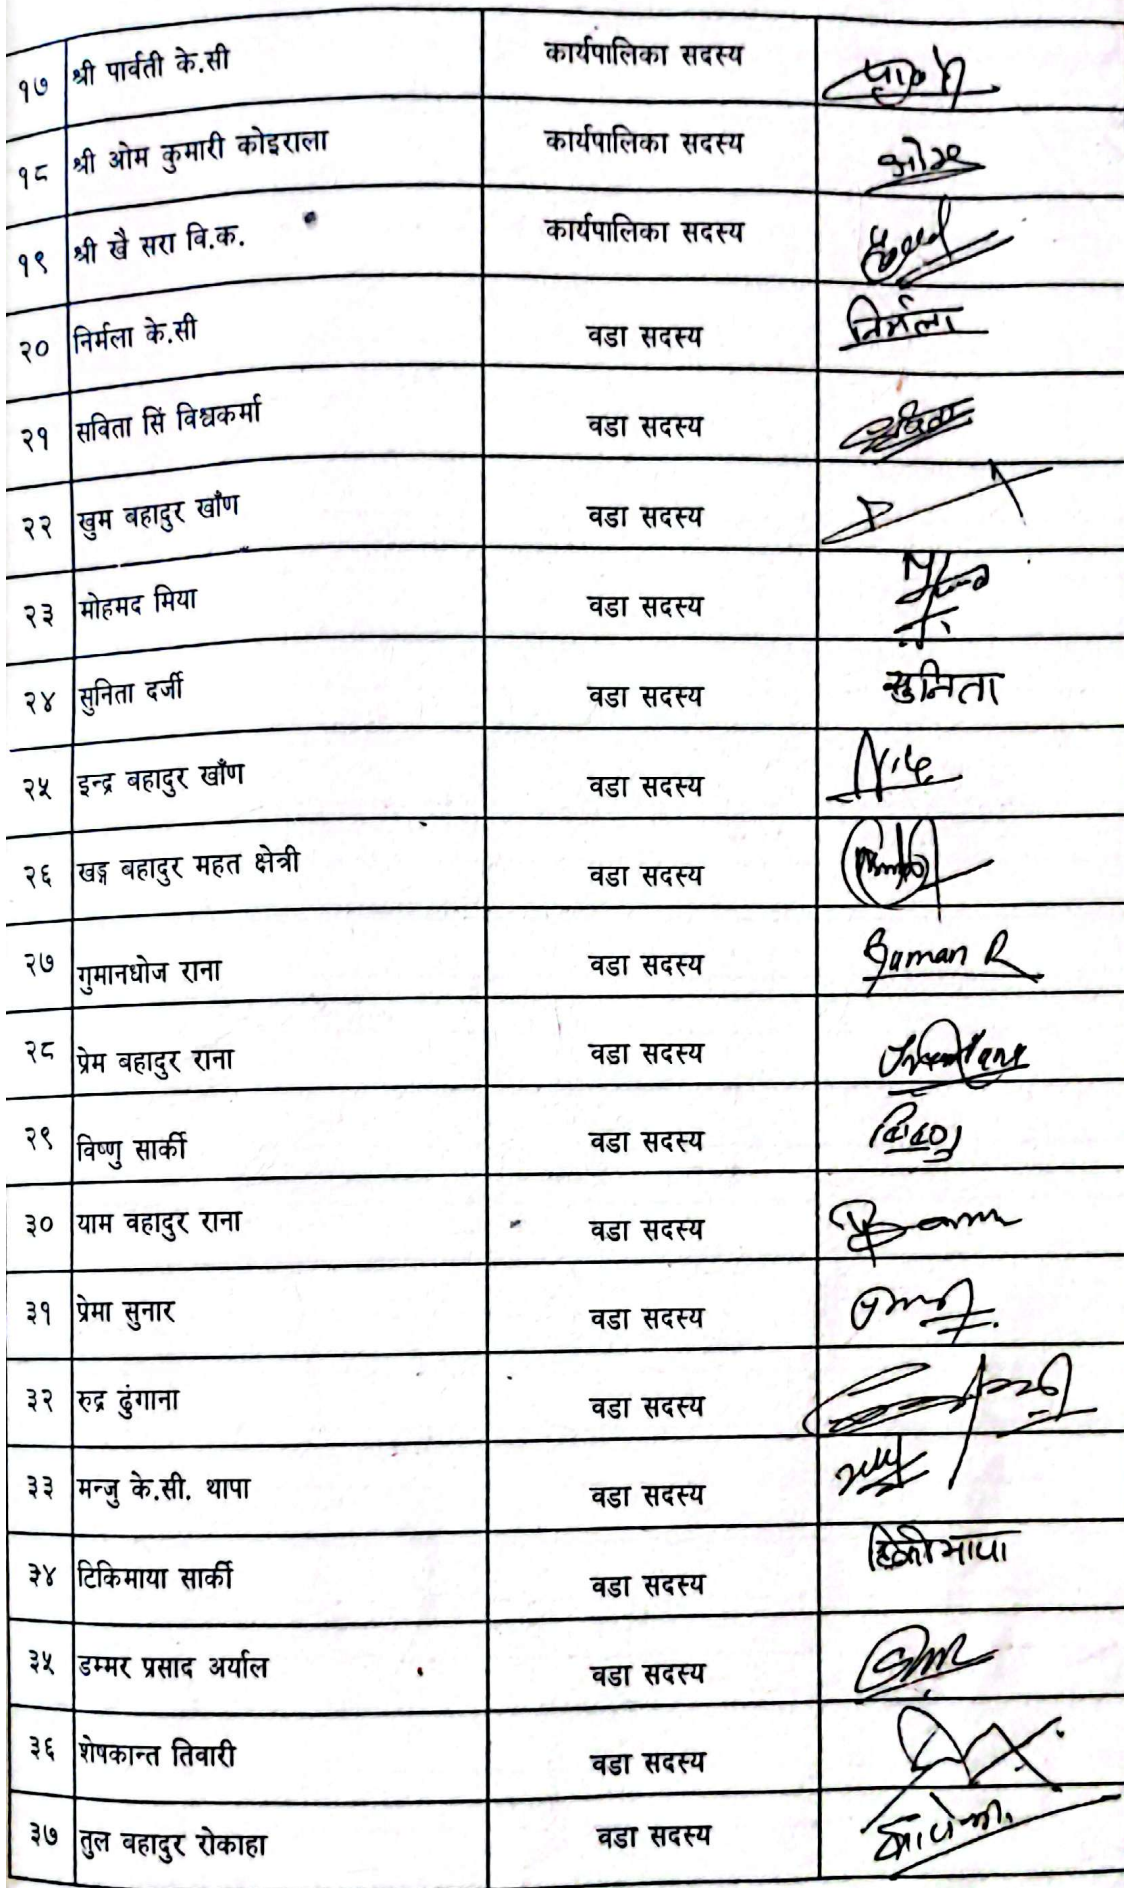 १७ श्री पार्वती के.सी कार्यपालिका सदस्य
१८ श्री ओम कुमारी कोइराला कार्यपालिका सदस्य
१९ श्री खै सरा वि.क. कार्यपालिका सदस्य
२० निर्मला के.सी वडा सदस्य निर्मला
२१ सविता सिं विश्वकर्मा वडा सदस्य
२२ खुम बहादुर खाँण वडा सदस्य
२३ मोहमद मिया वडा सदस्य
२४ सुनिता दर्जी वडा सदस्य सुनिता
२५ इन्द्र बहादुर खाँण वडा सदस्य
२६ खड्ग बहादुर महत क्षेत्री वडा सदस्य
२७ गुमानधोज राना वडा सदस्य Guman R
२८ प्रेम बहादुर राना वडा सदस्य
२९ विष्णु सार्की वडा सदस्य
३० याम वहादुर राना वडा सदस्य
३१ प्रेमा सुनार वडा सदस्य
३२ रुद्र ढुंगाना वडा सदस्य
३३ मन्जु के.सी. थापा वडा सदस्य
३४ टिकिमाया सार्की वडा सदस्य
३५ डम्मर प्रसाद अर्याल वडा सदस्य
३६ शेषकान्त तिवारी वडा सदस्य
३७ तुल वहादुर रोकाहा वडा सदस्य